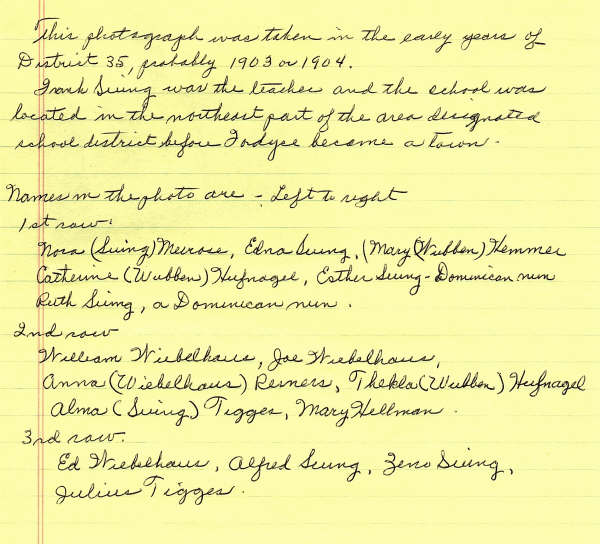 This photograph was taken in the early years of
District 35, probably 1903 or 1904.
Frank Suing was the teacher and the school was
located in the northeast part of the area designated
school district before Fordyce became a town.
Names in the photo are - Left to right
1st row:
Nora (Suing) Meirose, Edna Suing, (Mary (Wubben) Hemmer
Catherine (Wubben) Hufnagel, Esther Suing - Dominican nun
Ruth Suing, a Dominican nun.
2nd row
William Wiebelhaus, Joe Wiebelhaus,
Anna (Wiebelhaus) Reiners, Thekla (Wubben) Hufnagel
Alma (Suing) Tigges, Mary Hellman.
3rd row.
Ed Wiebelhaus, Alfred Suing, Zeno Suing,
Julius Tigges.